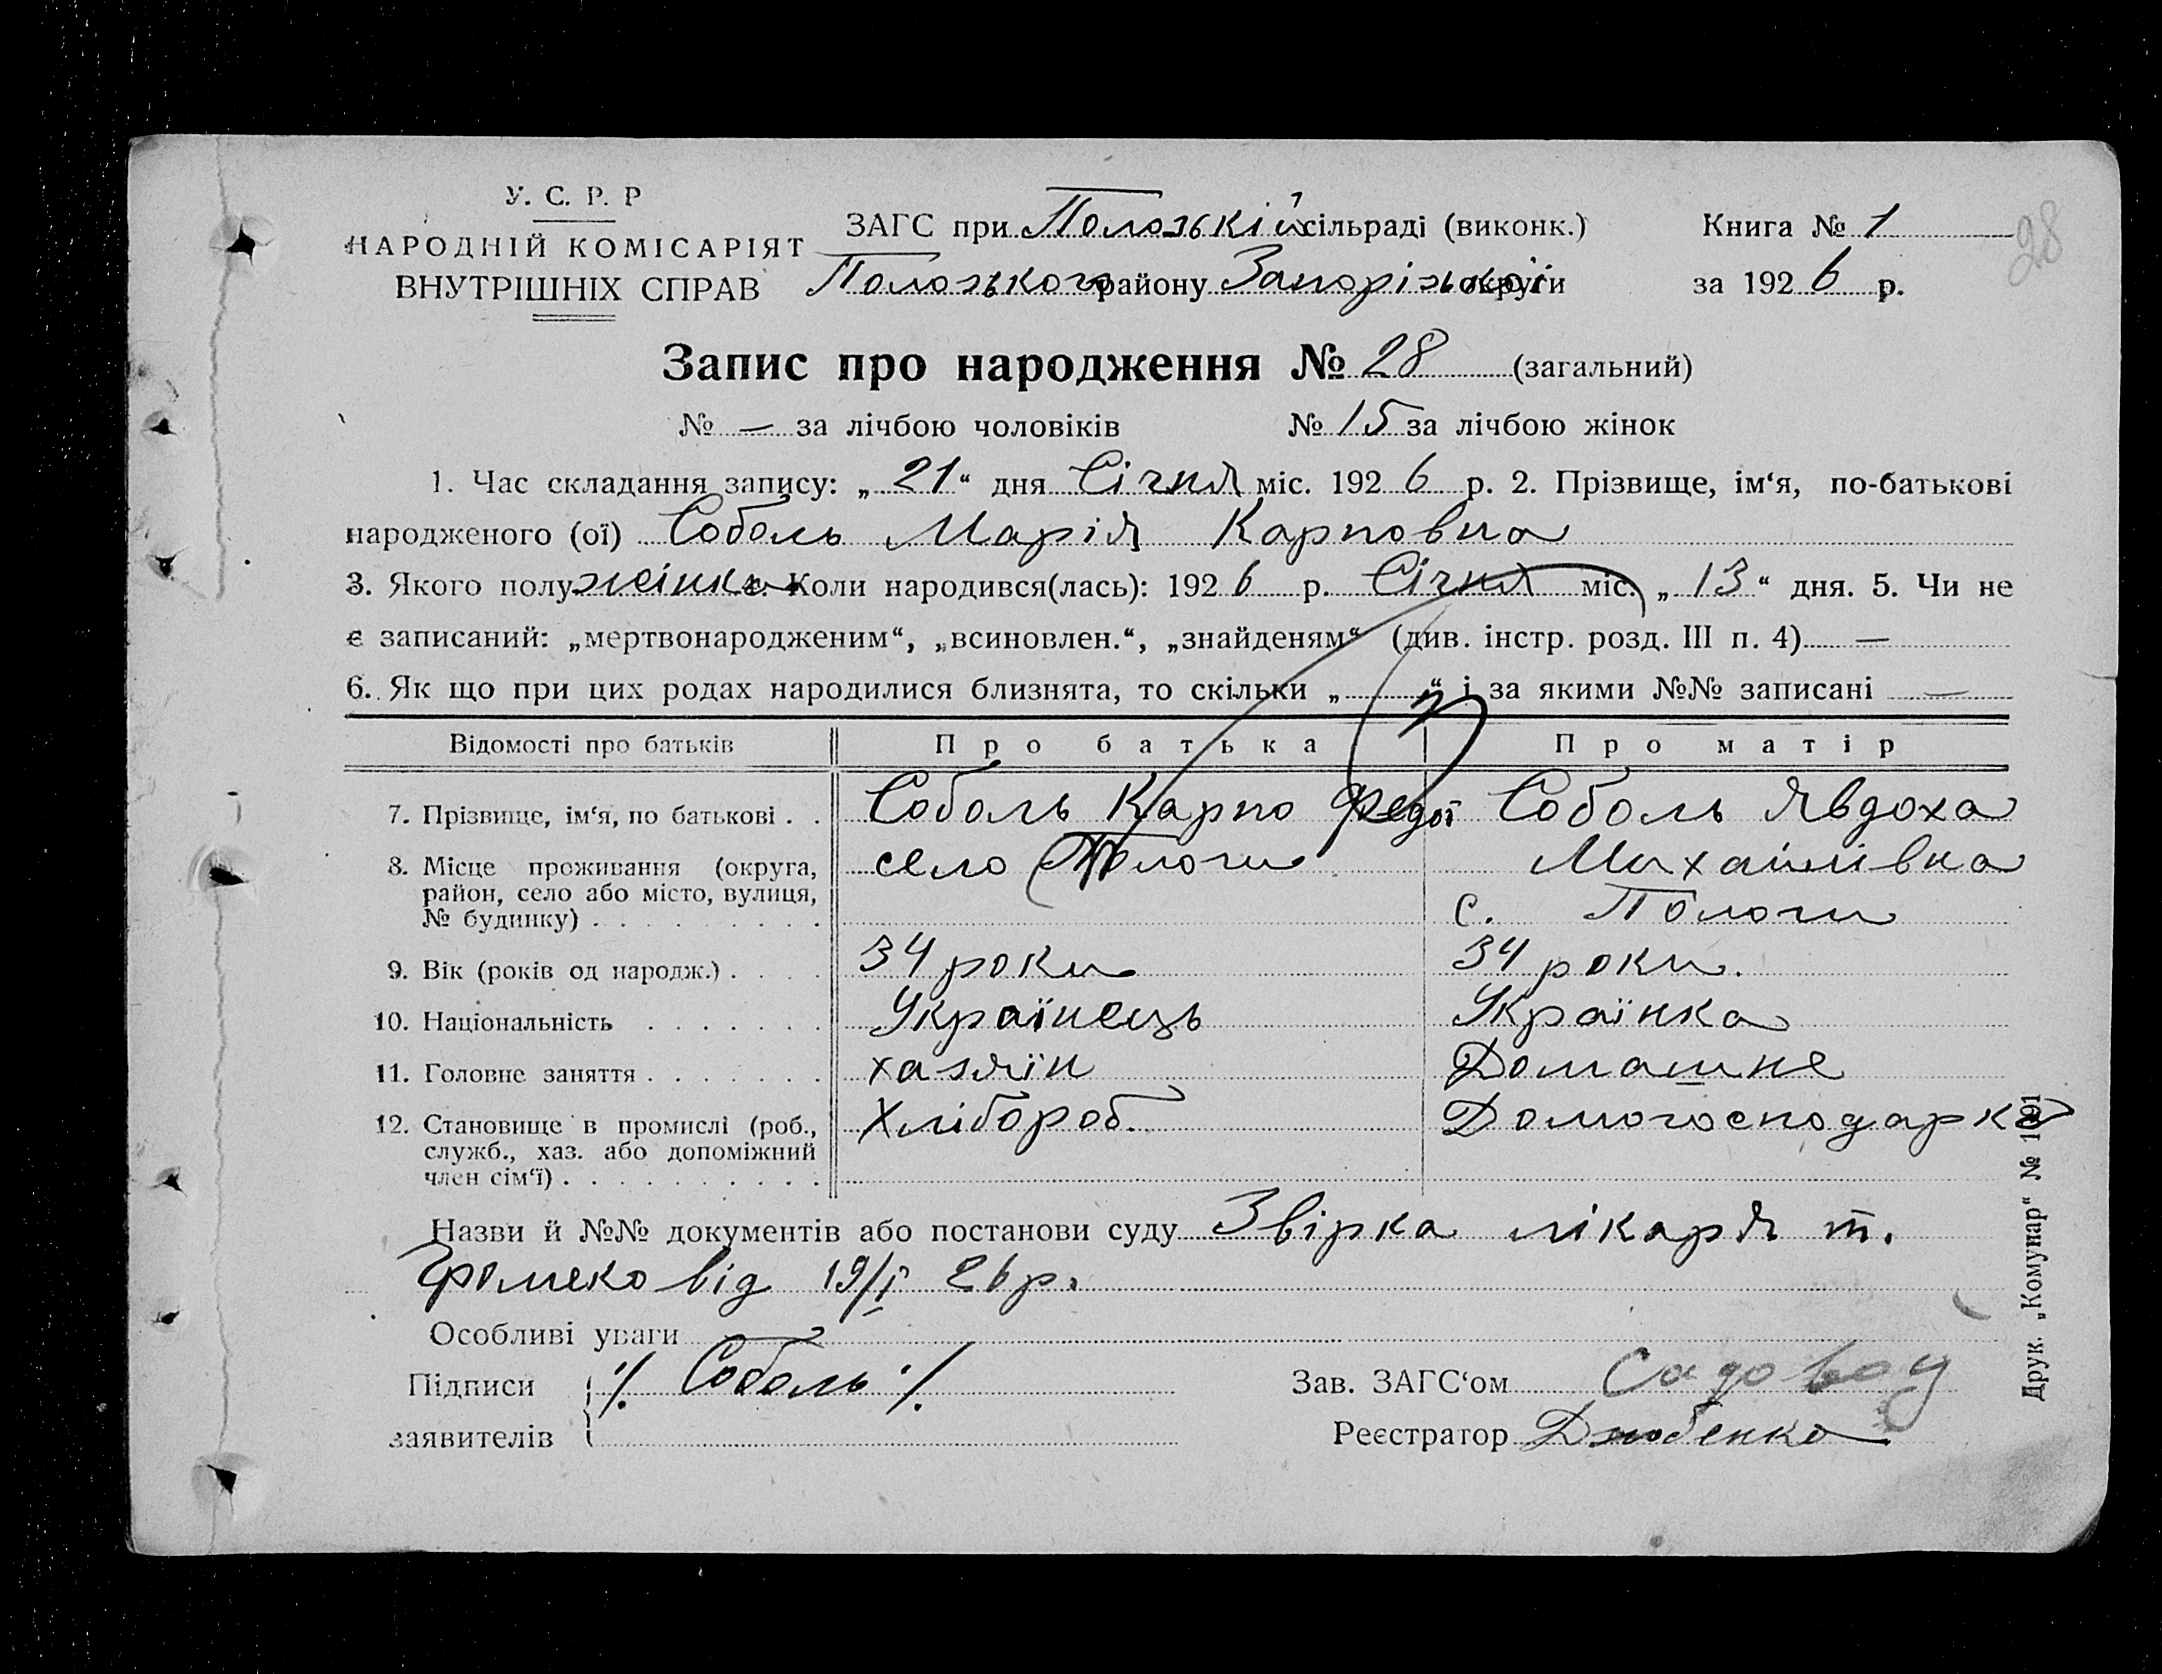 У. С. Р. Р
НАРОДНІЙ КОМІСАРІЯТ
ВНУТРІШНІХ СПРАВ
ЗАГС при Полозькій сільраді (виконк.)
Полозького району Запорізької округи
Книга № 1
за 1926 р.
28
Запис про народження № 28 (загальний)
№ — за лічбою чоловіків № 15 за лічбою жінок
1. Час складання запису: „21“ дня Січня міс. 1926 р. 2. Прізвище, ім‘я, по-батькові
народженого (ої) Соболь Марія Карповна
3. Якого полу жінка 4. Коли народився(лась): 1926 р. Січня міс. „13“ дня. 5. Чи не
є записаний: „мертвонародженим“, „всиновлен.“, „знайденям“ (див. інстр. розд. III п. 4) —
6. Як що при цих родах народилися близнята, то скільки „ “ і за якими №№ записані —
Відомості про батьків Про батька Про матір
7. Прізвище, ім‘я, по батькові . . Соболь Карпо Федот Соболь Явдоха
Михайлівна
8. Місце проживання (округа,
район, село або місто, вулиця,
№ будинку) . . . . . . . . . село Пологи с. Пологи
9. Вік (років од народж.) . . . . 34 роки 34 роки.
10. Національність . . . . . . . Українець Українка
11. Головне заняття . . . . . . . хазяїн Домашне
12. Становище в промислі (роб.,
служб., хаз. або допоміжний
член сім‘ї) . . . . . . . . . . Хлібороб. Домогосподарка
Назви й №№ документів або постанови суду Звірка лікаря т.
Громеко від 19/I 26 р.
Особливі уваги
Підписи
заявителів /. Соболь ./
Зав. ЗАГС‘ом Садовод
Реєстратор
Друк. „Комунар“ № 1091